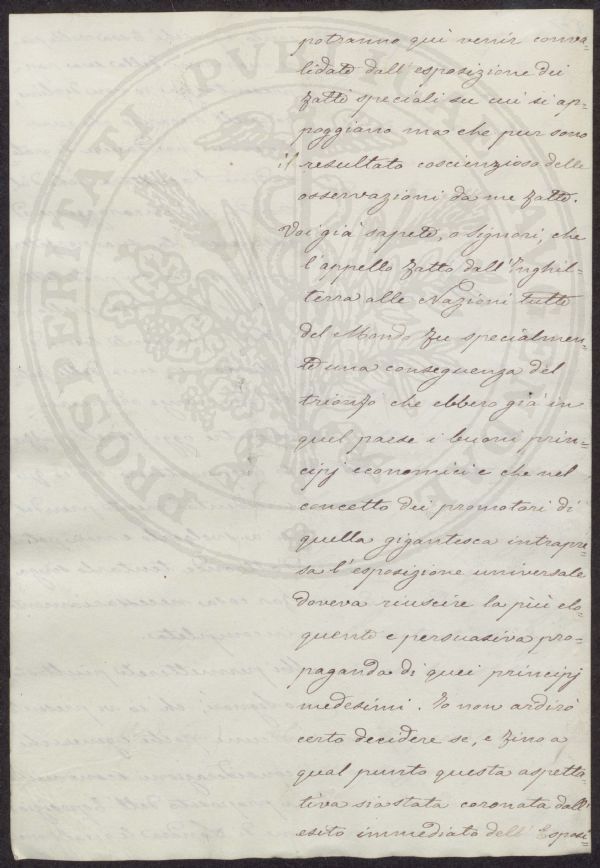 potranno qui venir conva-
lidate dall'esposizione dei
fatti speciali su cui si ap-
poggiano ma che pur sono
il resultato coscienzioso delle
osservazioni da me fatte.
Voi già sapete, o Signori, che
l'appello fatto dall'Inghil-
terra alle Nazioni tutte
del Mondo fu specialmen-
te una conseguenza del
trionfo che ebbero già in
quel paese i buoni prin-
cipj economici e che nel
concetto dei promotori di
quella gigantesca intrapre-
sa l'esposizione universale
doveva riuscire la più elo-
quente e persuasiva pro-
paganda di quei principj
medesimi. Io non ardirò
certo decidere se, e fino a
qual punto questa aspetta-
tiva sia stata coronata dall'
esito immediato dell'Esposi-
PROSPERITATI PVBLICAE